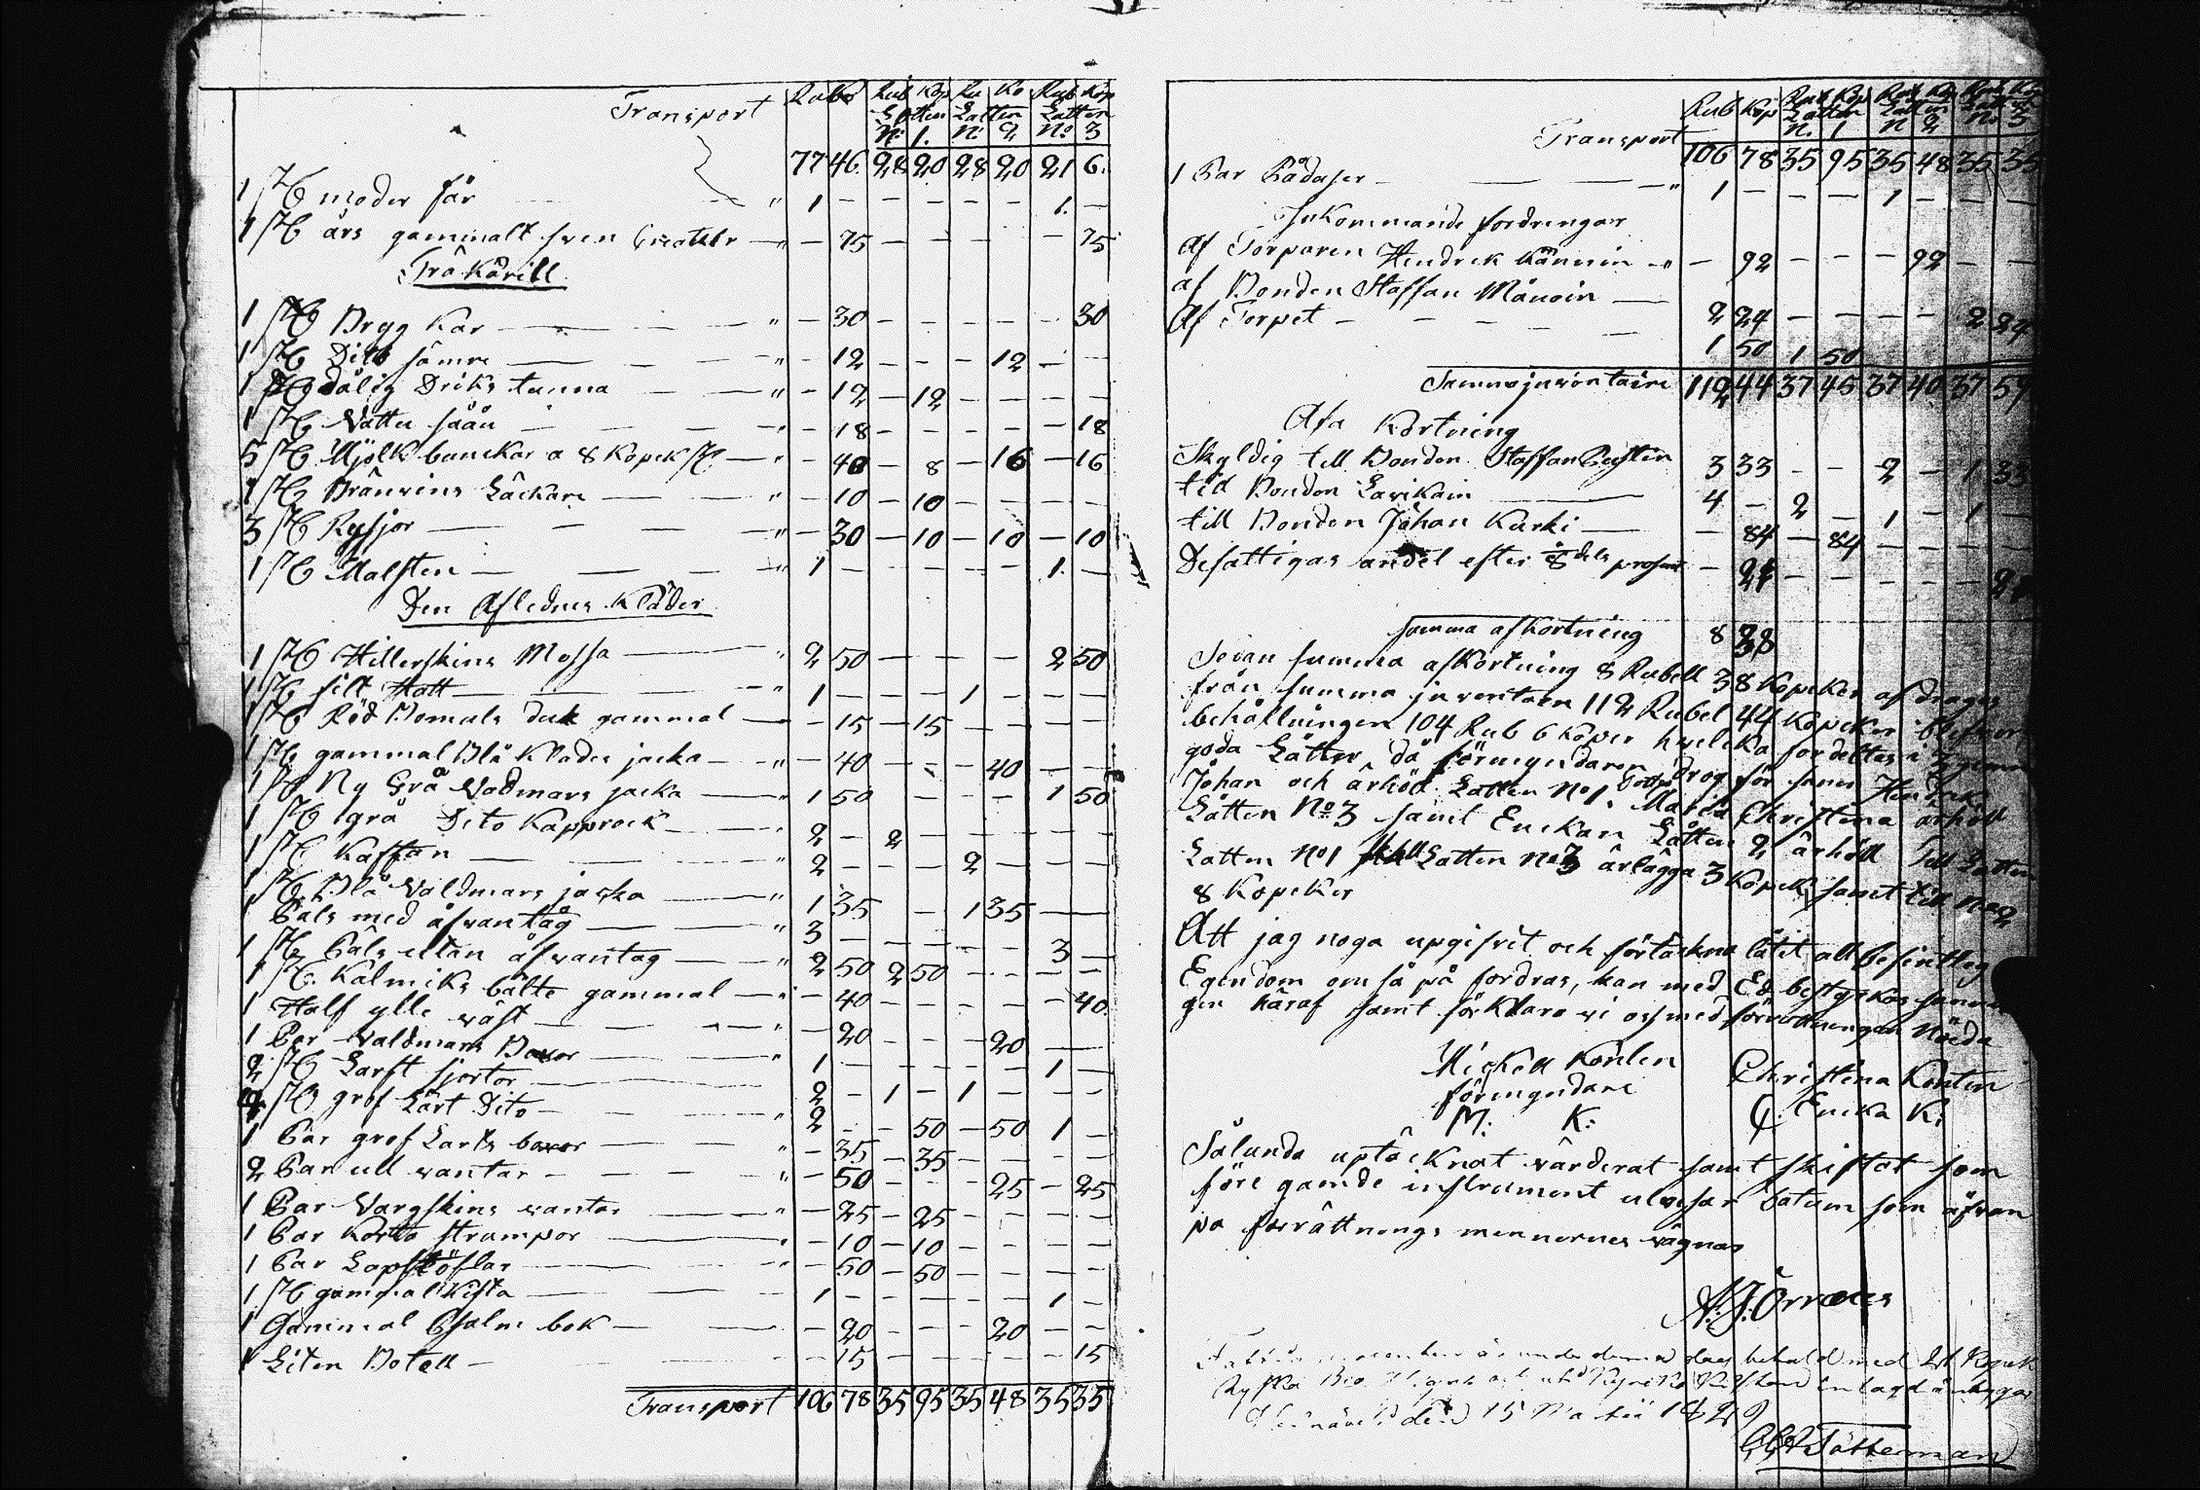 Transport Rub Ko Rub Kop Ru Ko Rub Kop
Lotten Lotten Lotten
No 1. No 2 No 3
77 46 28 20 28 20 21 6
1 st moder får — " 1 — — — — — 1. —
1 st års gammalt — " — 75 — — — — 75
Trä Kärill
1 st Bryg Kar — " — 30 — — — — 30
1 st Dito sämre — " — 12 — — — 12 — —
1 st dålig Driks tunna — " — 12 — 12 — — — —
1 st Vatten såån — — 18 — — — — — 18
5 st Mjölk bunckar a 8 Kopek st — " — 40 — 8 — 16 — 16
1 st Bränvins Läckare — " — 10 — 10 — — — —
3 st Rysjor — " — 30 — 10 — 10 — 10
1 st Malsten — " 1 — — — — — 1. —
Den Aflednes Kläder
1 st Hillerskins Mossa — " 2 50 — — — — 2 50
1 st filt Hatt — " 1 — — — 1 — — —
1 st Röd Bomuls duk gammal — — 15 — 15 — — — —
1 st gammal Blå Klädes jacka — " — 40 — — — 40 — —
1 st Ny Grå Vadmars jacka — " 1 50 — — — — 1 50
1 st grå Dito Kapprock — " 2 — 2 — — — — —
1 st Kaftan — " 2 — — — 2 — — —
1 st Blå Valdmars jacka — " 1 35 — — 1 35 — —
1 Päls med åfvantåg — " 3 — — — — — 3 —
1 st Päls utan åfvantag — " 2 50 2 50 — — — —
1 st Kalmiks bälte gammal — " — 40 — — — — — 40
1 Half ylle väst — " — 20 — — — 20 — —
1 Par Valdmars Boxor — " 1 — — — — — 1 —
2 st Larft sjortor — 2 — 1 — 1 — — —
4 st grof Lärt Dito — " 2 — — 50 — 50 1 —
1 Par grof Larts boxor — " — 35 — 35 — — — —
2 Par ull vantar — " — 50 — — — 25 — 25
1 Par Vargskins vantar — " — 25 — 25 — — — —
1 Par Korta strumpor — " — 10 — 10 — — — —
1 Par Lapstöflar — " — 50 — 50 — — — —
1 st gammal Kista — 1 — — — — — 1 —
1 Gammal Psalm bok — — 20 — — — 20 — —
1 Liten Botell — — 15 — — — — — 15
Transport 106 78 35 95 35 48 35 35
Rub Kop Rub Kop Rub Kop Rub Ko
Lotten Lotten
N. 1 N 2 No 3
Transport 106 78 35 95 35 48 35 35
1 Par — " 1 — — — 1 — — —
Inkommande fordringar
Af Torparen Hendrek — " — 92 — — — 92 — —
af Bonden Staffan — 2 24 — — — — 2 24
Af Torpet — 1 50 1 50
112 44 37 45 37 40 37 59
Afkortning
Skyldig till Bonden Staffan 3 33 — — 2 — 1 33
till Bonden Lavikain — 4 — 2 — 1 — 1 —
till Bonden Johan Kurki — — 84 — 84 — — — —
Defattigas andel efter 8 dels — 21 — — — — — 21
Summa afkortning 8 38
Sedan summa afkortning 8 Rubell 38 Kopeker afdrages
från summa inventarn 112 Rubel 44 Kopeker blifver
behållningen 104 Rub 6 hvilka fordeltes i 3 gemm
goda Låtter då förmyndaren drog för sonen Hendrik
Johan och ärhöll Latten No 1. Maria Christina ärhöll
Låtten No 3 samt Enckan Låtten 2 ärhöll Till Latten
Latten No 1 Latten No 3 ärlägga 3 Kopek samt till No 2
8 Kopeker
Att jag noga upgifvit och låtit all befintlig
Egendom om så på fordras, kan med Ed bestyrkas
häraf samt förklara vi oss med förrättningen Nöida
Mickell Kontin Christina Kontin
förmyndare Encka K:
M: K:
Sålunda uptäcknat värderat samt skiftat som
före gående instrument utvisar Datum som åfvan
på förrättnings mennernes vägnar
A: J: Orræus
behåld med 21 Kopek
den 15 Martii 1829
Tötterman